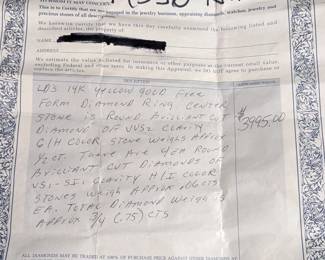 This is to Certify that we are engaged in the jewelry business, appraising diamonds, watches, jewelry and
precious stones of all descriptions.
We herewith certify that we have this day carefully examined the following listed and
described articles, the property of:
NAME
ADDRESS
We estimate the value as listed for insurance or other purposes at the current retail value,
excluding Federal and other taxes. In making this Appraisal, we DO NOT agree to purchase or
replace the articles.
LDS 14K YELLOW GOLD FREE
FORM DIAMOND RING CENTER
STONE IS ROUND BRILLIANT CUT
DIAMOND OF VVS2 CLARITY
G/H COLOR STONE WEIGHS APPROX
1/2 CT. THERE ARE 4 EA ROUND
BRILLIANT CUT DIAMONDS OF
VS1-SI1 CLARITY H/I COLOR
STONES WEIGH APPROX .06CTS
EA. TOTAL DIAMOND WEIGHT IS
APPROX 3/4 (.75) CTS
$3995.00
ALL DIAMONDS MAY BE TRADED AT 100% OF PURCHASE PRICE AGAINST OTHER DIAMONDS AT